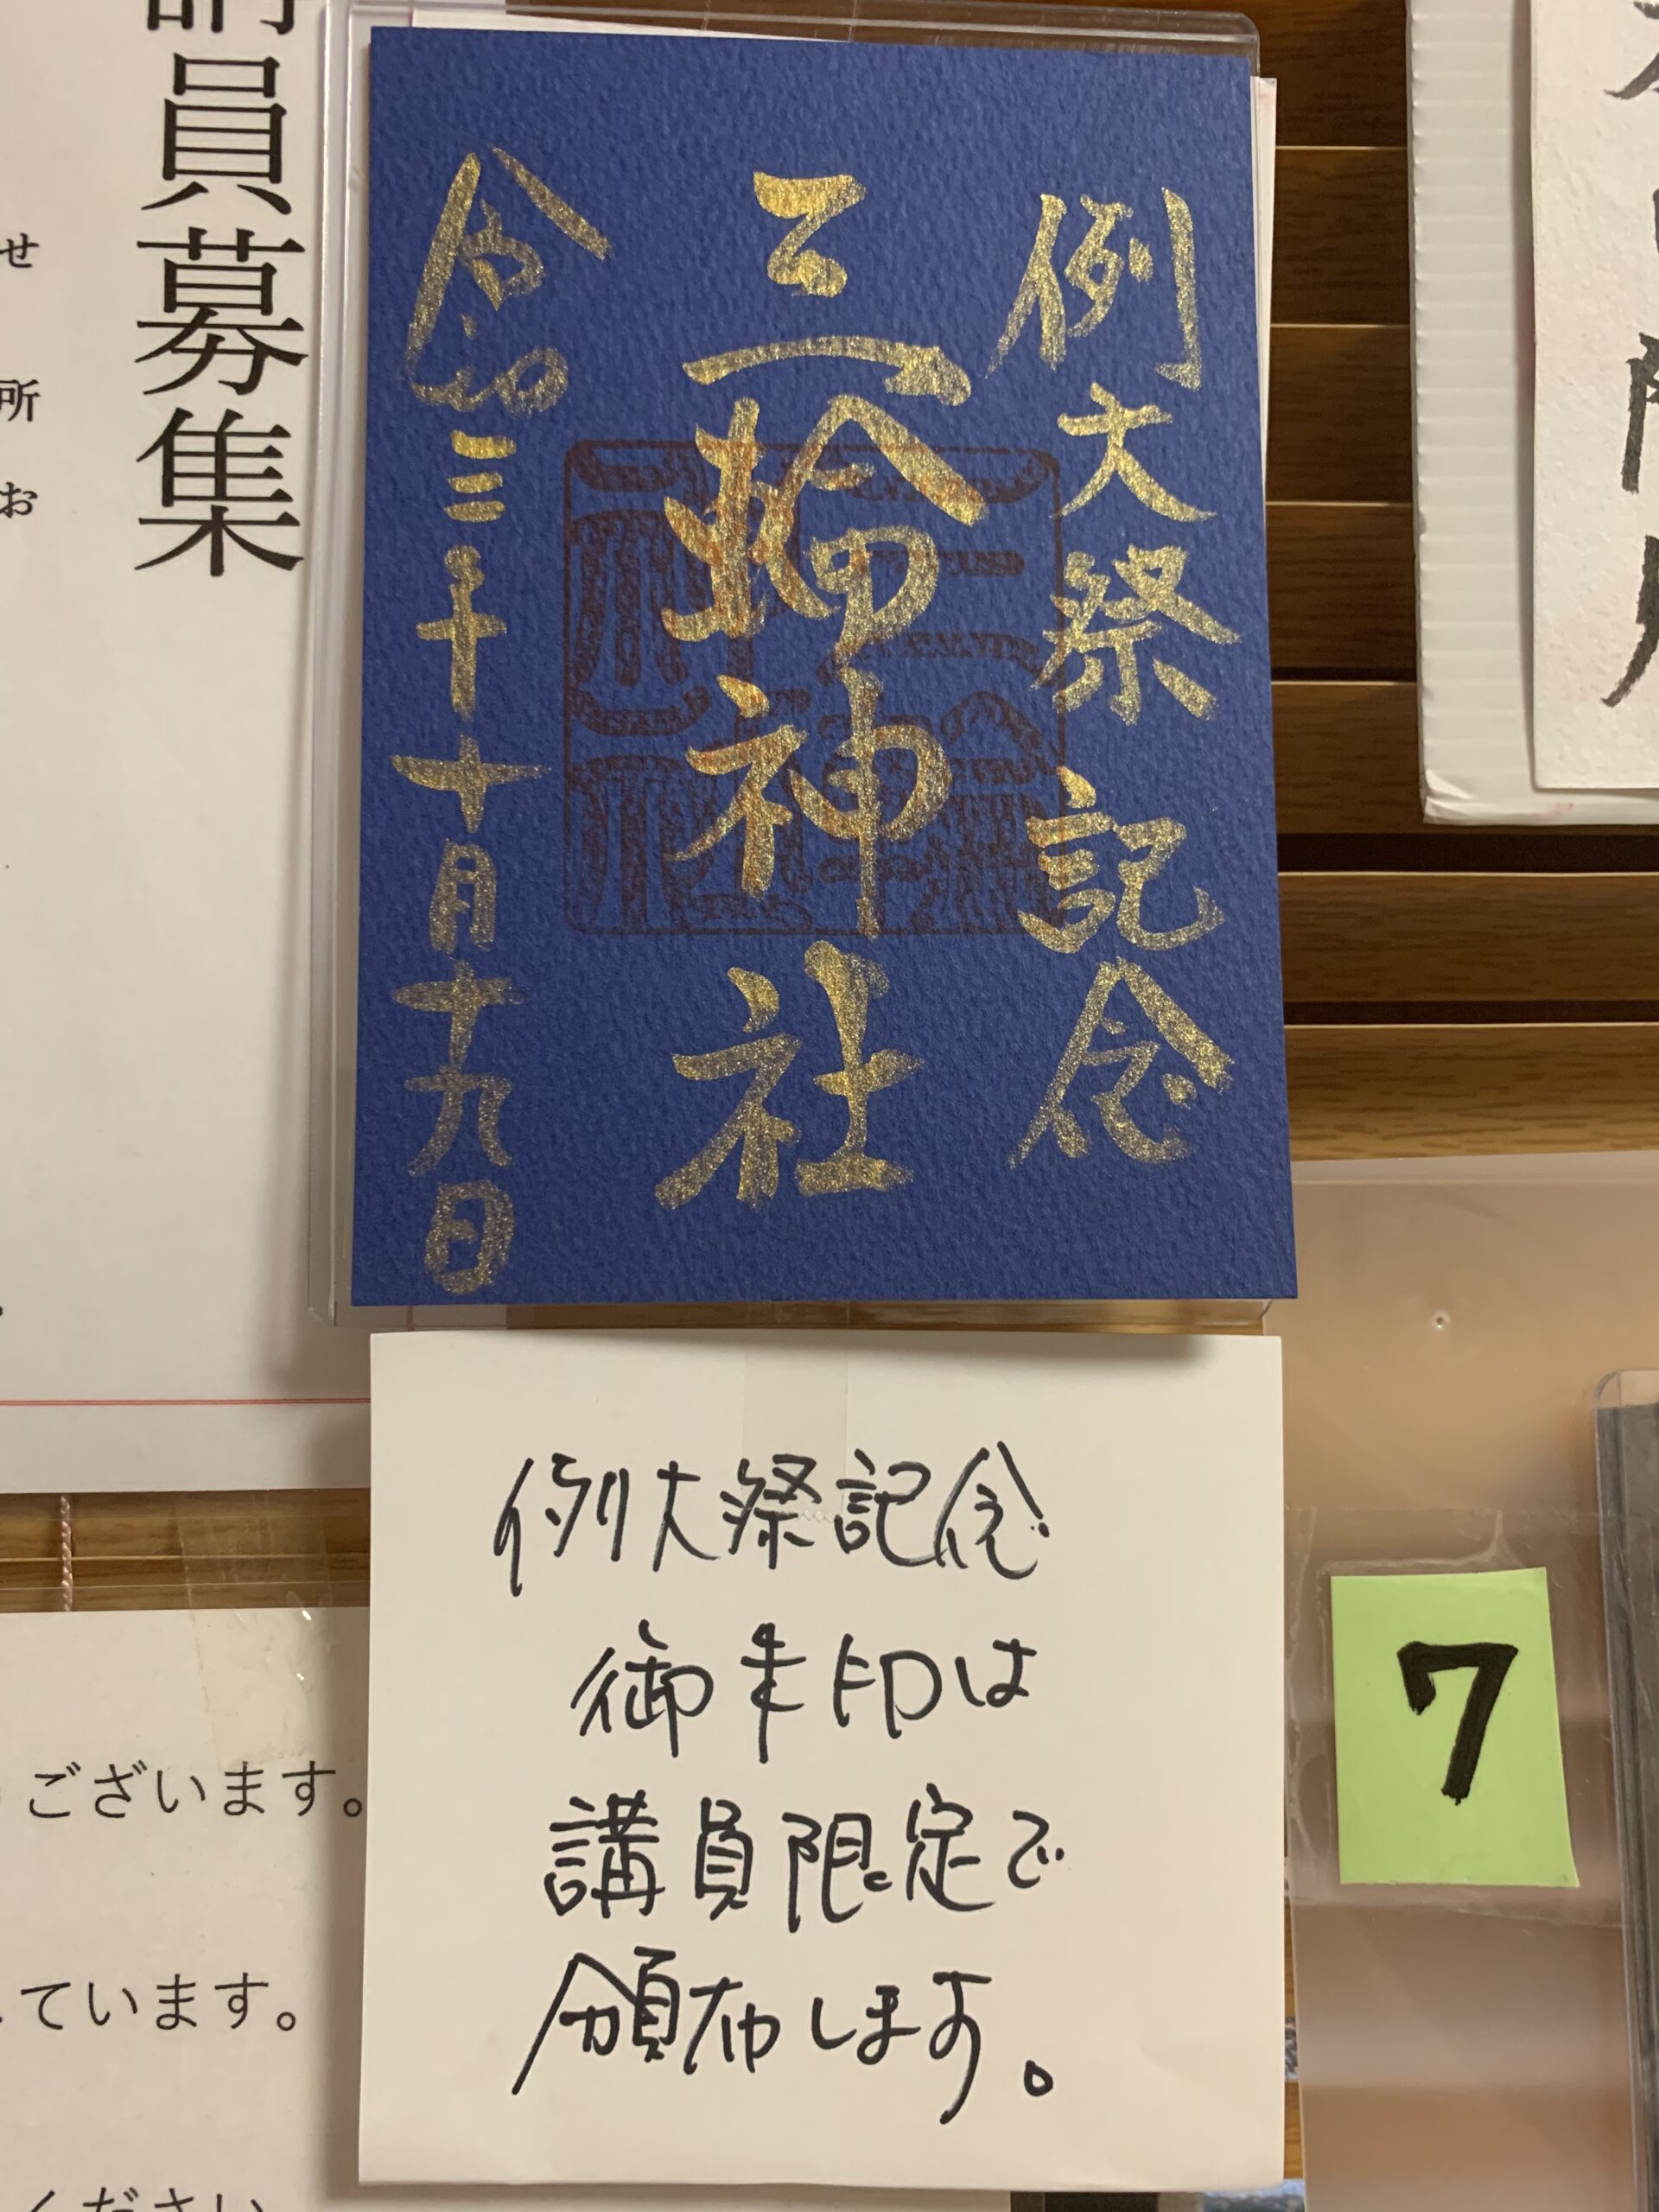 例大祭記念
三輪神社
令和三年十月十九日
例大祭記念
御朱印は
講員限定で
頒布します。
7
員募集
せ
所
お
ございます。
ています。
ください